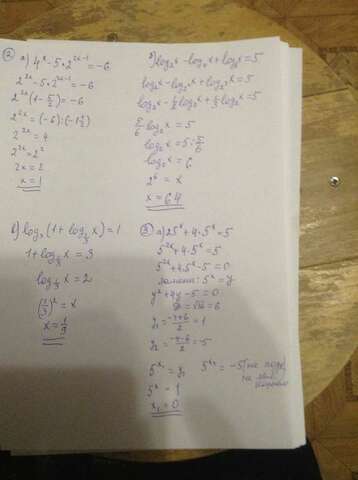 ② а) 4^x - 5·2^(2x-1) = -6
2^(2x) - 5·2^(2x-1) = -6
2^(2x)(1 - 5/2) = -6
2^(2x) = (-6):(-1 1/2)
2^(2x) = 4
2^(2x) = 2^2
2x = 2
x = 1
б) log₂x - log₄x + log₈x = 5
log₂x - log₂²x + log₂³x = 5
log₂x - 1/2 log₂x + 1/3 log₂x = 5
5/6 log₂x = 5
log₂x = 5 : 5/6
log₂x = 6
2^6 = x
x = 64
в) log₃(1 + log_(1/3) x) = 1
1 + log_(1/3) x = 3
log_(1/3) x = 2
(1/3)^2 = x
x = 1/9
③ а) 25^x + 4·5^x = 5
5^(2x) + 4·5^x = 5
5^(2x) + 4·5^x - 5 = 0
замена: 5^x = y
y² + 4y - 5 = 0
D = √36 = 6
y₁ = (-4+6)/2 = 1
y₂ = (-4-6)/2 = -5
5^(x₁) = y₁
5^x = 1
x₁ = 0
5^(x₂) = -5